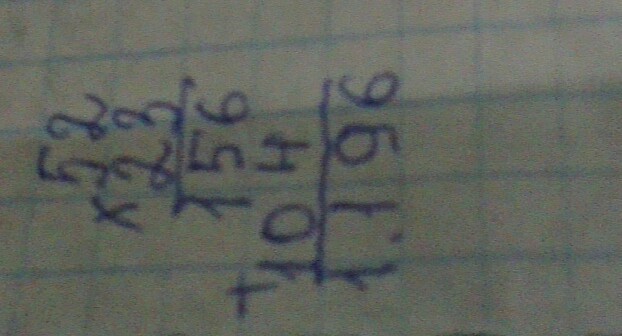 52
x 23
156
+ 104
1.196